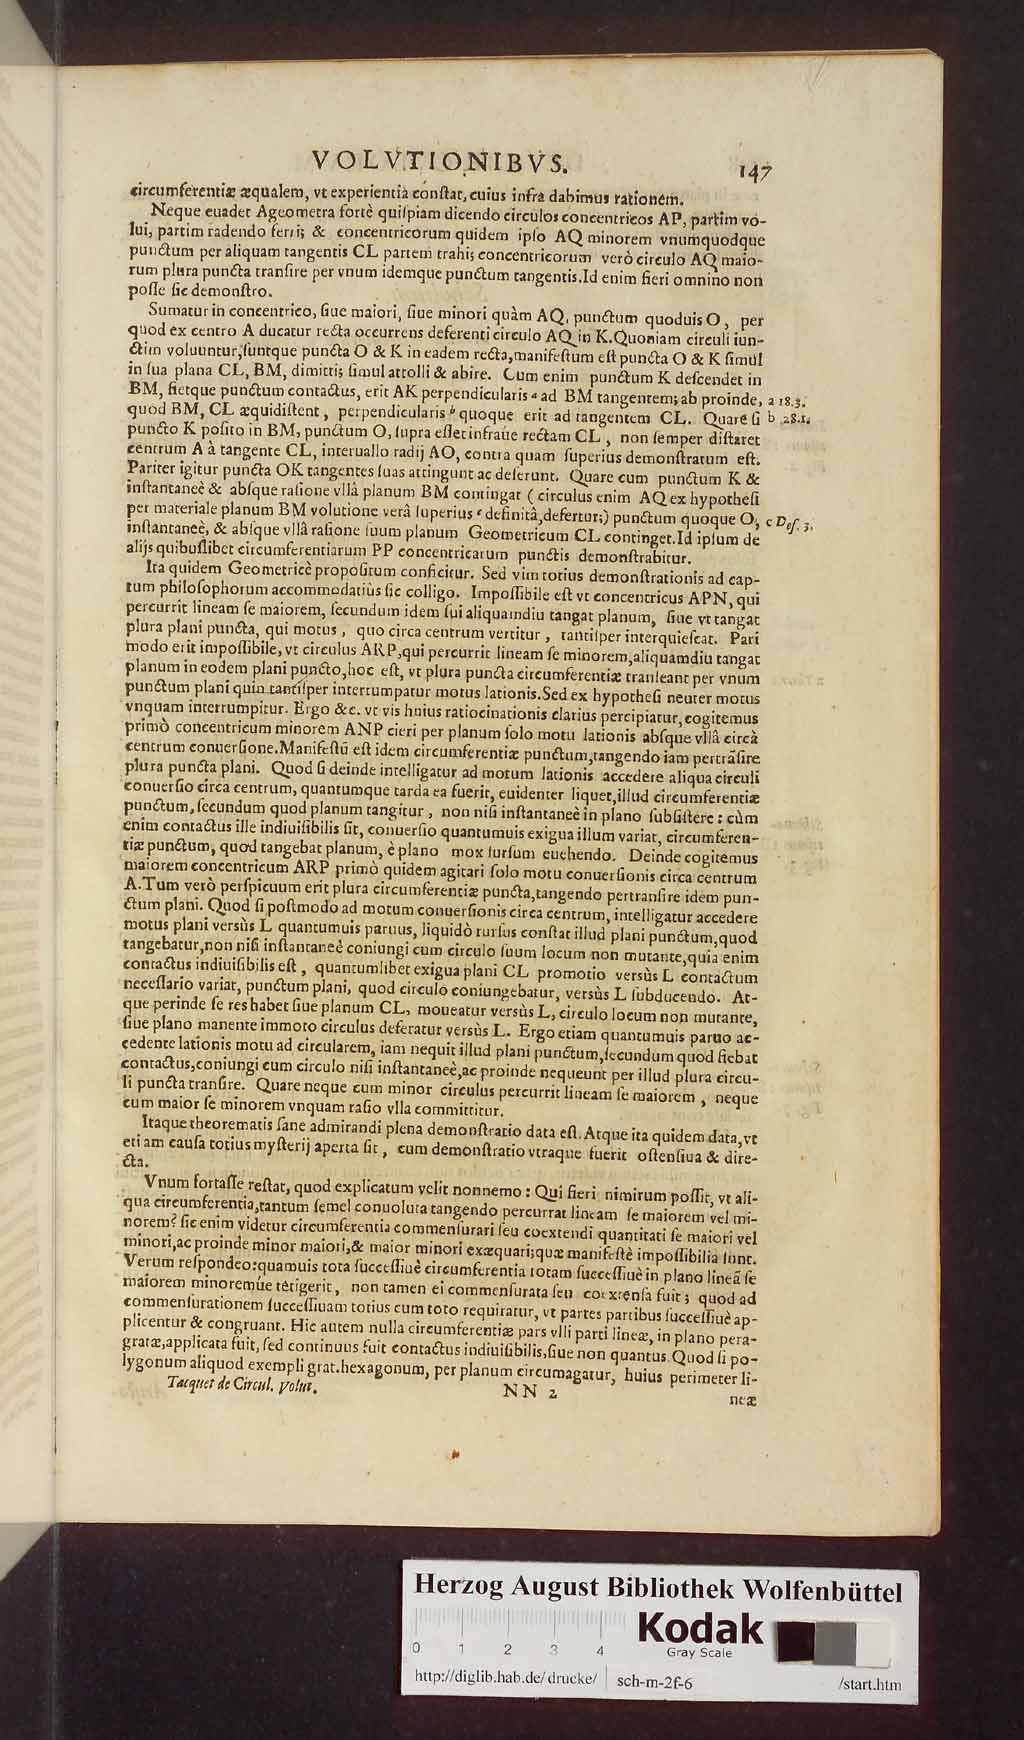 VOLVTIONIBVS. 147
circumferentiæ æqualem, vt experientiâ conſtat, cuius infra dabimus rationem.
Neque euadet Ageometra fortè quiſpiam dicendo circulos concentricos AP, partim vo-
lui, partim radendo ferri; & concentricorum quidem ipſo AQ minorem vnumquodque
punctum per aliquam tangentis CL partem trahi; concentricorum verò circulo AQ maio-
rum plura puncta tranſire per vnum idemque punctum tangentis. Id enim fieri omnino non
poſſe ſic demonſtro.
Sumatur in concentrico, ſiue maiori, ſiue minori quàm AQ, punctum quoduis O, per
quod ex centro A ducatur recta occurrens deferenti circulo AQ in K. Quoniam circuli iun-
ctim voluuntur, ſuntque puncta O & K in eadem recta, manifeſtum eſt puncta O & K ſimul
in ſua plana CL, BM, dimitti; ſimul attolli & abire. Cum enim punctum K deſcendet in
BM, fietque punctum contactus, erit AK perpendicularis a ad BM tangentem; ab proinde, a 18.3.
quod BM, CL æquidiſtent, perpendicularis b quoque erit ad tangentem CL. Quare ſi b 28.1.
puncto K poſito in BM, punctum O, ſupra eſſet infraue rectam CL, non ſemper diſtaret
centrum A à tangente CL, interuallo radij AO, contra quam ſuperius demonſtratum eſt.
Pariter igitur puncta OK tangentes ſuas attingunt ac deſerunt. Quare cum punctum K &
inſtantaneè & abſque raſione vllâ planum BM contingat (circulus enim AQ ex hypotheſi
per materiale planum BM volutione verâ ſuperius c definitâ, defertur;) punctum quoque O, c Def. 3.
inſtantaneè, & abſque vllâ raſione ſuum planum Geometricum CL continget. Id ipſum de
alijs quibuſlibet circumferentiarum PP concentricarum punctis demonſtrabitur.
Ita quidem Geometricè propoſitum conficitur. Sed vim totius demonſtrationis ad cap-
tum philoſophorum accommodatiùs ſic colligo. Impoſſibile eſt vt concentricus APN, qui
percurrit lineam ſe maiorem, ſecundum idem ſui aliquamdiu tangat planum, ſiue vt tangat
plura plani puncta, qui motus, quo circa centrum vertitur, tantiſper interquieſcat. Pari
modo erit impoſſibile, vt circulus ARP, qui percurrit lineam ſe minorem, aliquamdiu tangat
planum in eodem plani puncto, hoc eſt, vt plura puncta circumferentiæ tranſeant per vnum
punctum plani quin tantiſper interrumpatur motus lationis. Sed ex hypotheſi neuter motus
vnquam interrumpitur. Ergo &c. vt vis huius ratiocinationis clariùs percipiatur, cogitemus
primò concentricum minorem ANP cieri per planum ſolo motu lationis abſque vllâ circà
centrum conuerſione. Manifeſtū eſt idem circumferentiæ punctum, tangendo iam pertrāſire
plura puncta plani. Quod ſi deinde intelligatur ad motum lationis accedere aliqua circuli
conuerſio circa centrum, quantumque tarda ea fuerit, euidenter liquet, illud circumferentiæ
punctum, ſecundum quod planum tangitur, non niſi inſtantaneè in plano ſubſiſtere: cùm
enim contactus ille indiuiſibilis ſit, conuerſio quantumuis exigua illum variat, circumferen-
tiæ punctum, quod tangebat planum, è plano mox ſurſum euehendo. Deinde cogitemus
maiorem concentricum ARP primò quidem agitari ſolo motu conuerſionis circa centrum
A. Tum verò perſpicuum erit plura circumferentiæ puncta, tangendo pertranſire idem pun-
ctum plani. Quod ſi poſtmodo ad motum conuerſionis circa centrum, intelligatur accedere
motus plani versùs L quantumuis paruus, liquidò rurſus conſtat illud plani punctum, quod
tangebatur, non niſi inſtantaneè coniungi cum circulo ſuum locum non mutante, quia enim
contactus indiuiſibilis eſt, quantumlibet exigua plani CL promotio versùs L contactum
neceſſario variat, punctum plani, quod circulo coniungebatur, versùs L ſubducendo. At-
que perinde ſe res habet ſiue planum CL, moueatur versùs L, circulo locum non mutante,
ſiue plano manente immoto circulus deferatur versùs L. Ergo etiam quantumuis paruo ac-
cedente lationis motu ad circularem, iam nequit illud plani punctum, ſecundum quod fiebat
contactus, coniungi cum circulo niſi inſtantaneè, ac proinde nequeunt per illud plura circu-
li puncta tranſire. Quare neque cum minor circulus percurrit lineam ſe maiorem, neque
cum maior ſe minorem vnquam raſio vlla committitur.
Itaque theorematis ſane admirandi plena demonſtratio data eſt. Atque ita quidem data, vt
etiam cauſa totius myſterij aperta ſit, cum demonſtratio vtraque fuerit oſtenſiua & dire-
cta.
Vnum fortaſſe reſtat, quod explicatum velit nonnemo: Qui fieri nimirum poſſit, vt ali-
qua circumferentia, tantum ſemel conuoluta tangendo percurrat lineam ſe maiorem vel mi-
norem? ſic enim videtur circumferentia commenſurari ſeu coextendi quantitati ſe maiori vel
minori, ac proinde minor maiori, & maior minori exæquari; quæ manifeſtè impoſſibilia ſunt.
Verum reſpondeo: quamuis tota ſucceſſiuè circumferentia totam ſucceſſiuè in plano lineā ſe
maiorem minoremùe tetigerit, non tamen ei commenſurata ſeu coextenſa fuit; quod ad
commenſurationem ſucceſſiuam totius cum toto requiratur, vt partes partibus ſucceſſiuè ap-
plicentur & congruant. Hic autem nulla circumferentiæ pars vlli parti lineæ, in plano pera-
gratæ, applicata fuit, ſed continuus fuit contactus indiuiſibilis, ſiue non quantus. Quod ſi po-
lygonum aliquod exempli grat. hexagonum, per planum circumagatur, huius perimeter li-
Tacquet de Circul. Volut. NN 2 neæ
Herzog August Bibliothek Wolfenbüttel
Kodak
Gray Scale
0 1 2 3 4
http://diglib.hab.de/drucke/ sch-m-2f-6 /start.htm